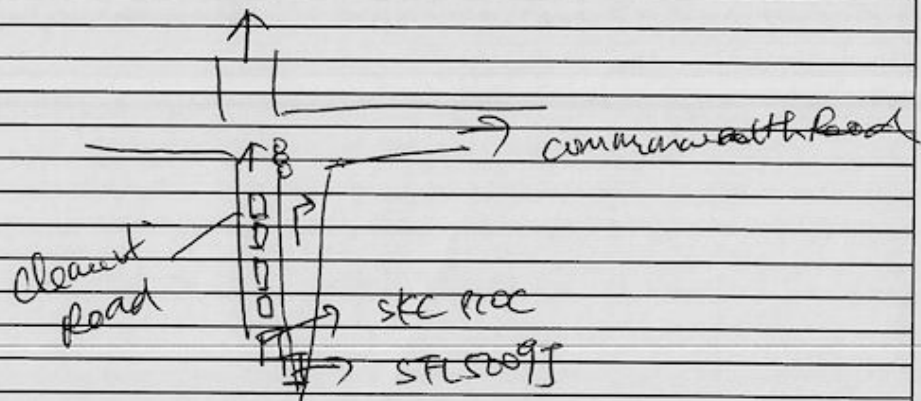 commonwealth Road
Clement
Road
SFL5009J